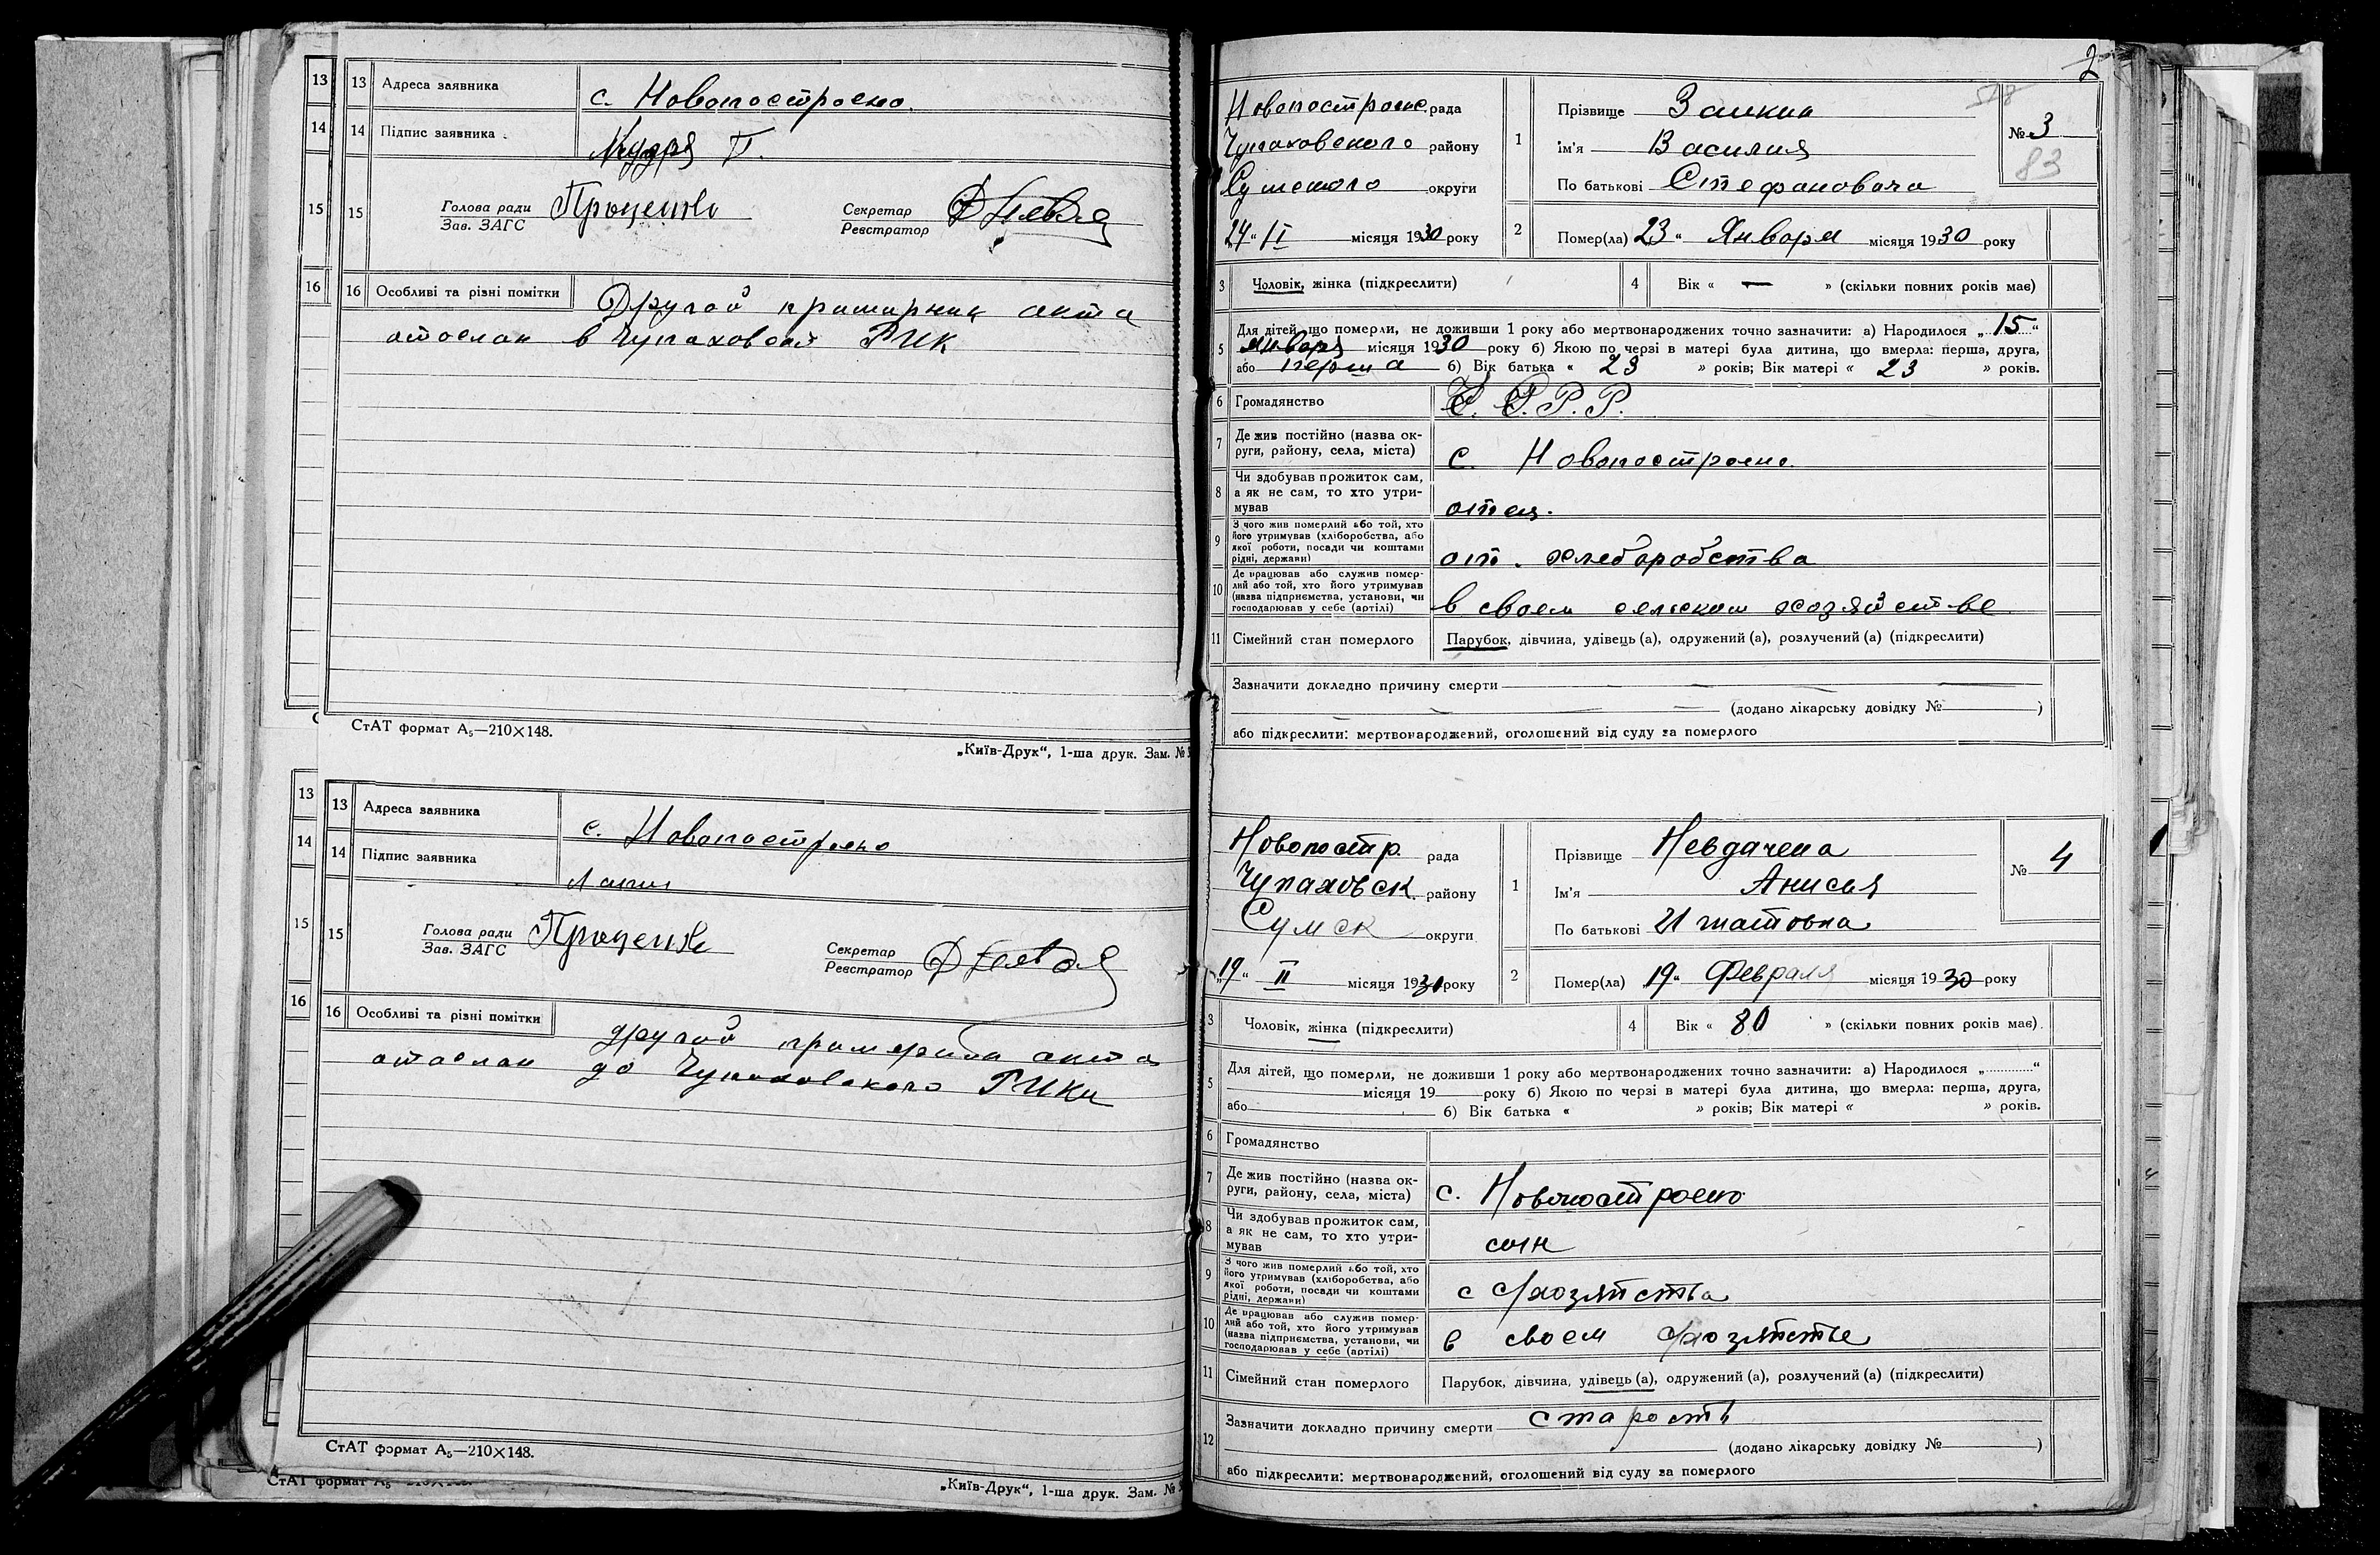 13
14
15
16
13 Адреса заявника с. Новопостроено.
14 Підпис заявника Кудря П.
15 Голова ради Зав. ЗАГС Проценко Секретар Реєстратор
16 Особливі та різні помітки Другой примирник акта
отослан в Чупаховский РИК
СтАТ формат А₅—210×148.
„Київ-Друк“, 1-ша друк. Зам. №
13
14
15
16
13 Адреса заявника с. Новопостроено
14 Підпис заявника
15 Голова ради Зав. ЗАГС Проценко Секретар Реєстратор
16 Особливі та різні помітки другой примерник акта
отослан до Чупаховского РИКи
СтАТ формат А₅—210×148.
СтАТ формат А₅—210×148.
„Київ-Друк“, 1-ша друк. Зам. №
2
Новопостроенс. рада
Чупаховского району
Сумского округи
„24“ II місяця 1930 року
1 Прізвище Заикин
Ім'я Василия
По батькові Стефановича
№ 3
83
2 Помер(ла) 23 „ Января місяця 1930 року
3 Чоловік, жінка (підкреслити) 4 Вік « — » (скільки повних років має)
5 Для дітей, що померли, не доживши 1 року або мертвонароджених точно зазначити: а) Народилося „15“
января місяця 1930 року б) Якою по черзі в матері була дитина, що вмерла: перша, друга,
або перша б) Вік батька « 23 » років; Вік матері « 23 » років.
6 Громадянство С. С.Р.Р.
7 Де жив постійно (назва округи, району, села, міста) с. Новопостроено.
8 Чи здобував прожиток сам, а як не сам, то хто утримував отец.
9 З чого жив померлий або той, хто його утримував (хліборобства, або якої роботи, посади чи коштами рідні, держави) от. хлеборобства
10 Де працював або служив померлий або той, хто його утримував (назва підприємства, установи, чи господарював у себе (артілі) в своем сельском хозяйстве
11 Сімейний стан померлого Парубок, дівчина, удівець (а), одружений (а), розлучений (а) (підкреслити)
Зазначити докладно причину смерти
(додано лікарську довідку № )
або підкреслити: мертвонароджений, оголошений від суду за померлого
Новопостр. рада
Чупаховск. району
Сумск округи
„19“ II місяця 1930 року
1 Прізвище Невдачена
Ім'я Анисья
По батькові Игнатовна
№ 4
2 Помер(ла) „19“ Февраля місяця 1930 року
3 Чоловік, жінка (підкреслити) 4 Вік « 80 » (скільки повних років має).
5 Для дітей, що померли, не доживши 1 року або мертвонароджених точно зазначити: а) Народилося „ “
місяця 19 року б) Якою по черзі в матері була дитина, що вмерла: перша, друга,
або б) Вік батька « » років; Вік матері « » років.
6 Громадянство
7 Де жив постійно (назва округи, району, села, міста) с. Новопостроено
8 Чи здобував прожиток сам, а як не сам, то хто утримував сын
9 З чого жив померлий або той, хто його утримував (хліборобства, або якої роботи, посади чи коштами рідні, держави) с хозяйства
10 Де працював або служив померлий або той, хто його утримував (назва підприємства, установи, чи господарював у себе (артілі) в своем хозяйстве
11 Сімейний стан померлого Парубок, дівчина, удівець (а), одружений (а), розлучений (а) (підкреслити)
12 Зазначити докладно причину смерти старость
(додано лікарську довідку № )
або підкреслити: мертвонароджений, оголошений від суду за померлого